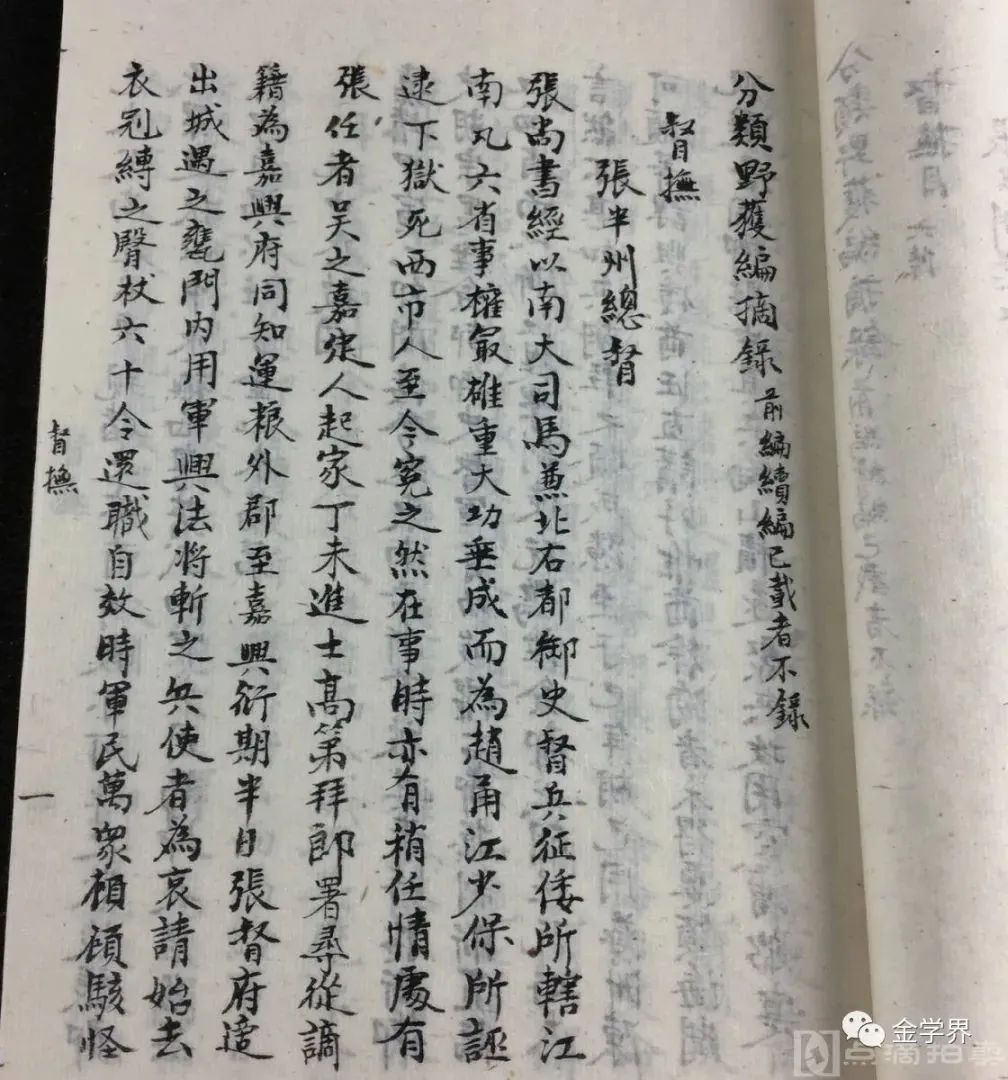 分類野獲編摘録 前編續編已載者不錄
督撫
張半州總督
張尚書經以南大司馬兼北右都御史督兵征倭所轄江
南凡六省事權最雄重大功垂成而為趙甬江少保所誣
逮下獄死西市人至今冤之然在事時亦有稍任情處有
張任者吴之嘉定人起家丁未進士高第拜郎署尋從謫
籍為嘉興府同知運粮外郡至嘉興衍期半日張督府适
出城遇之甕門内用軍興法将斬之兵使者為哀請始去
衣冠縛之臀杖六十令還職自效時軍民萬眾頓頓駭怪
督撫
一
金学界
点滴拍卖